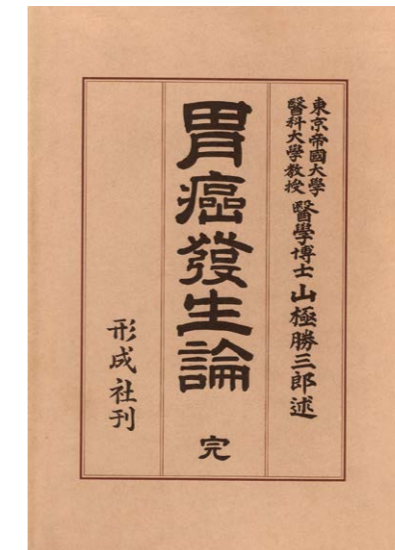 東京帝國大學
醫科大學教授
醫學博士 山極勝三郎述
胃癌發生論
完
形成社刊